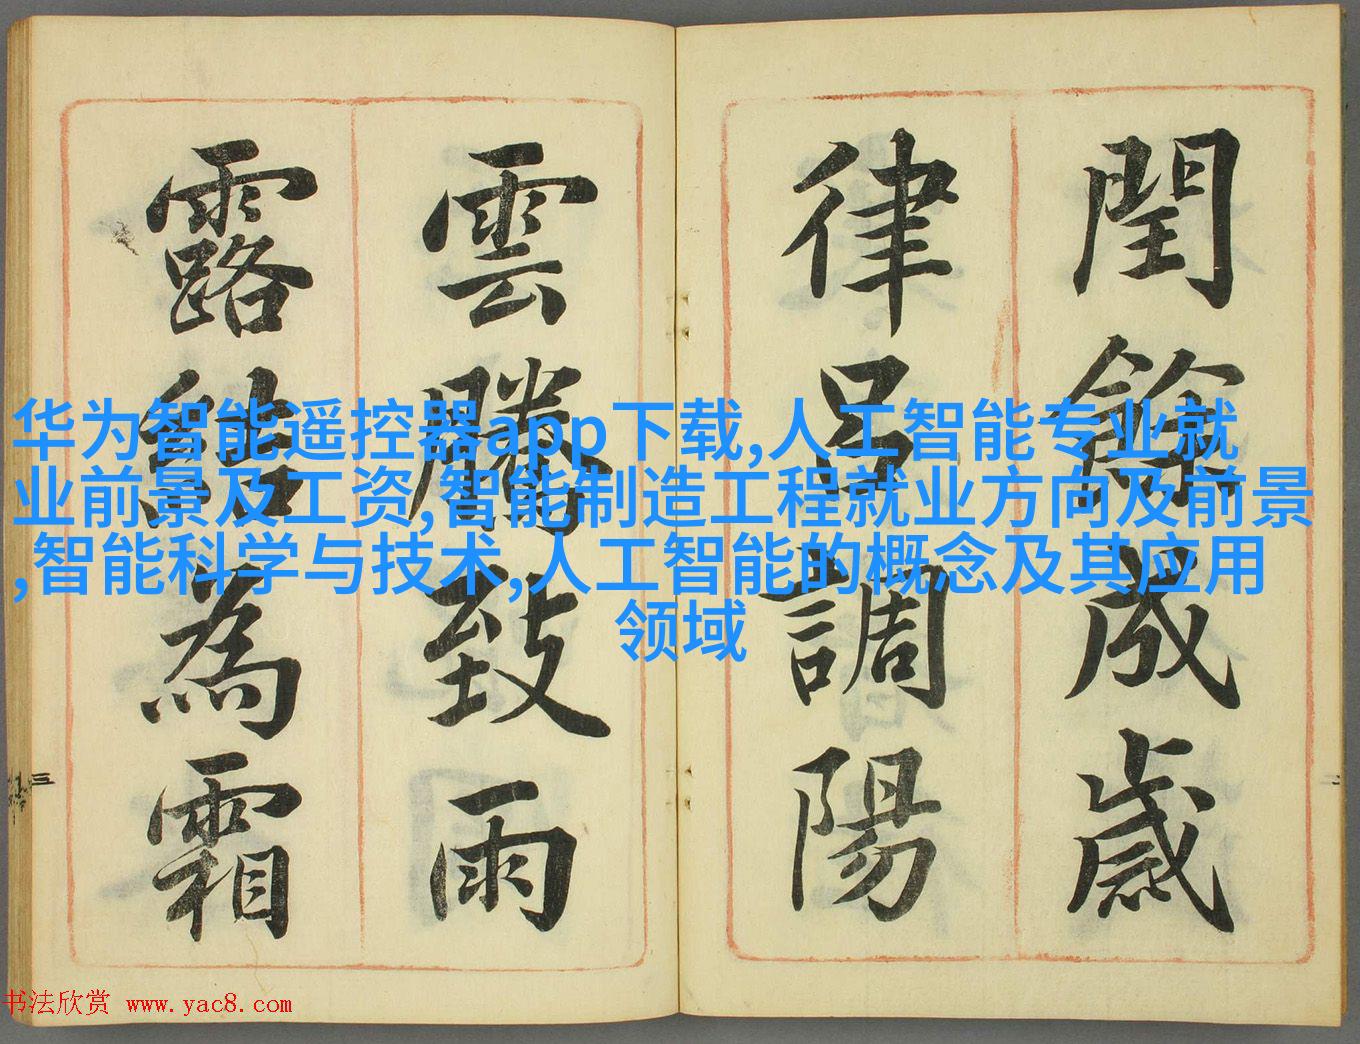 閏餘成歲
律呂調陽
雲騰致雨
露結為霜
华为智能遥控器app下载,人工智能专业就
业前景及工资,智能制造工程就业方向及前景
,智能科学与技术,人工智能的概念及其应用
领域
三
二
书法欣赏 www.yac8.com